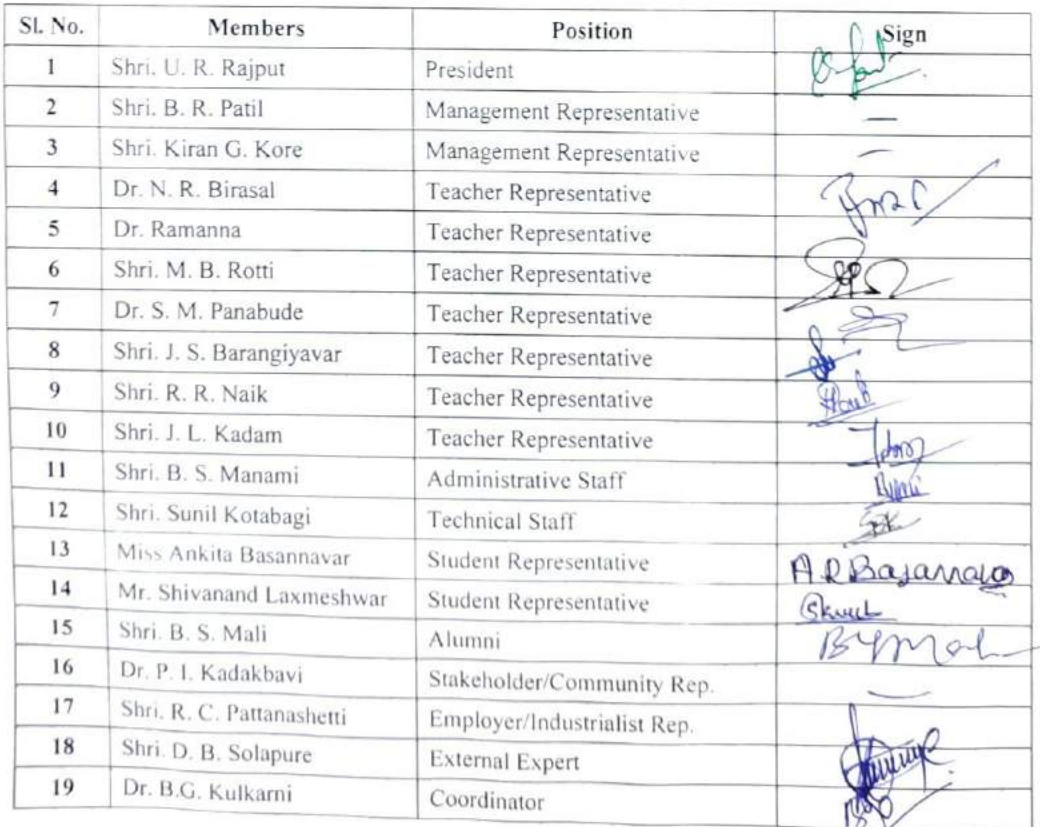 Sl. No. Members Position Sign
1 Shri. U. R. Rajput President
2 Shri. B. R. Patil Management Representative —
3 Shri. Kiran G. Kore Management Representative —
4 Dr. N. R. Birasal Teacher Representative
5 Dr. Ramanna Teacher Representative
6 Shri. M. B. Rotti Teacher Representative
7 Dr. S. M. Panabude Teacher Representative
8 Shri. J. S. Barangiyavar Teacher Representative
9 Shri. R. R. Naik Teacher Representative
10 Shri. J. L. Kadam Teacher Representative
11 Shri. B. S. Manami Administrative Staff
12 Shri. Sunil Kotabagi Technical Staff
13 Miss Ankita Basannavar Student Representative
14 Mr. Shivanand Laxmeshwar Student Representative
15 Shri. B. S. Mali Alumni
16 Dr. P. I. Kadakbavi Stakeholder/Community Rep. —
17 Shri. R. C. Pattanashetti Employer/Industrialist Rep.
18 Shri. D. B. Solapure External Expert
19 Dr. B.G. Kulkarni Coordinator